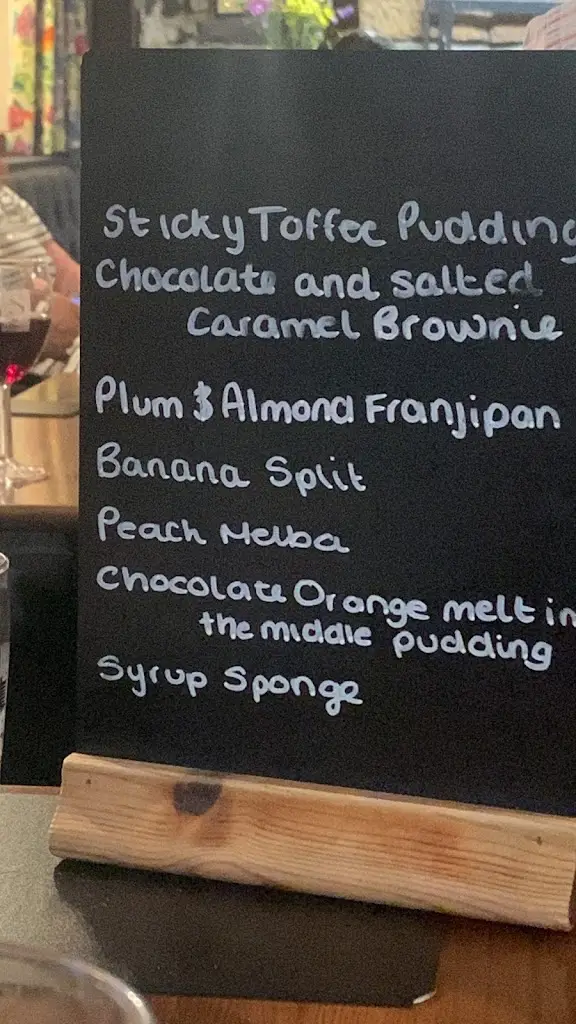 Sticky Toffee Pudding
Chocolate and salted
Caramel Brownie
Plum & Almond Franjipan
Banana Split
Peach Melba
Chocolate Orange melt in
the middle pudding
Syrup Sponge